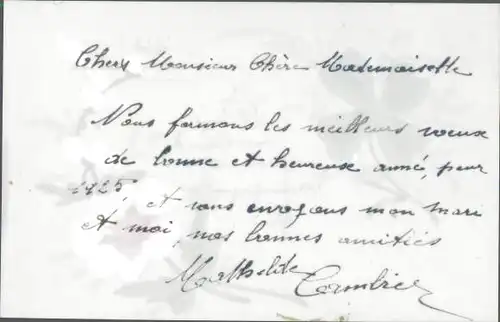 Chers Monsieur Chère Mademoiselle
Nous formons les meilleurs voeux
de bonne et heureuse année, pour
1925, et vous envoyons mon mari
et moi, nos bonnes amitiés
Mathilde Cambier